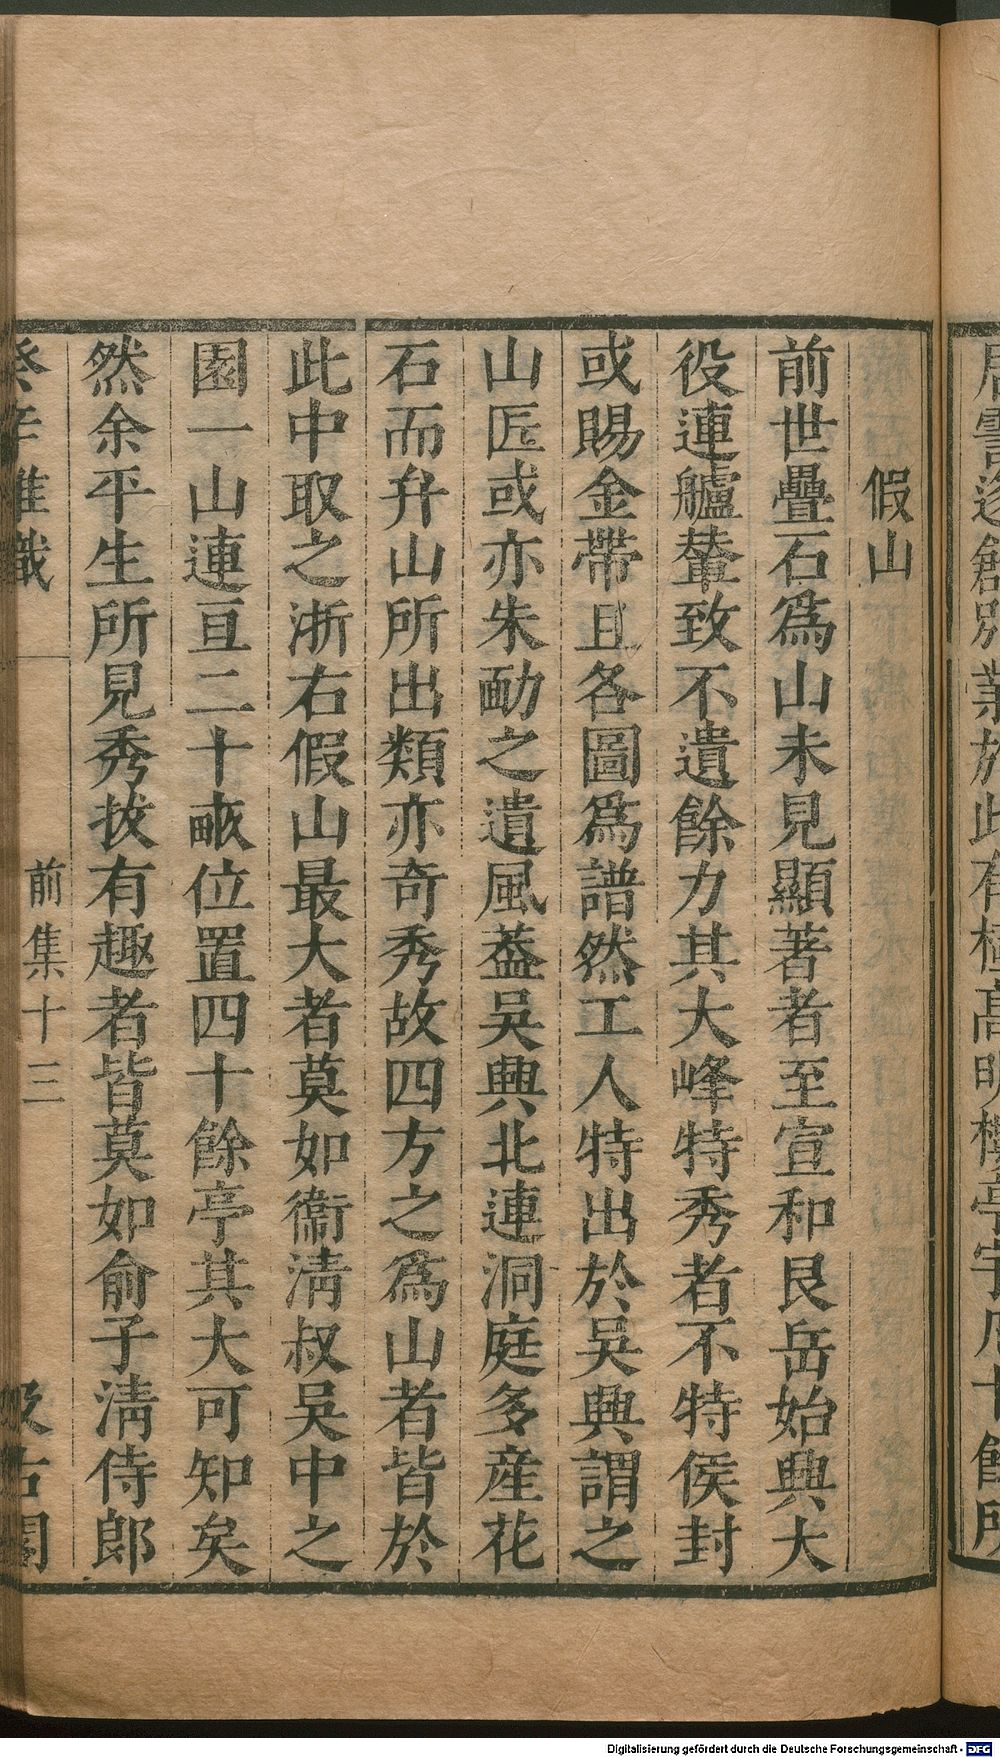 假山
前世疊石爲山未見顯著者至宣和艮岳始興大
役連艫輦致不遺餘力其大峰特秀者不特侯封
或賜金帶且各圖爲譜然工人特出於吳興謂之
山匠或亦朱勔之遺風蓋吳興北連洞庭多産花
石而弁山所出類亦奇秀故四方之爲山者皆於
此中取之浙右假山最大者莫如衞淸叔吳中之
園一山連亘二十畝位置四十餘亭其大可知矣
然余平生所見秀拔有趣者皆莫如俞子淸侍郎
癸辛雜識 前集十三 汲古閣
Digitalisierung gefördert durch die Deutsche Forschungsgemeinschaft - DFG